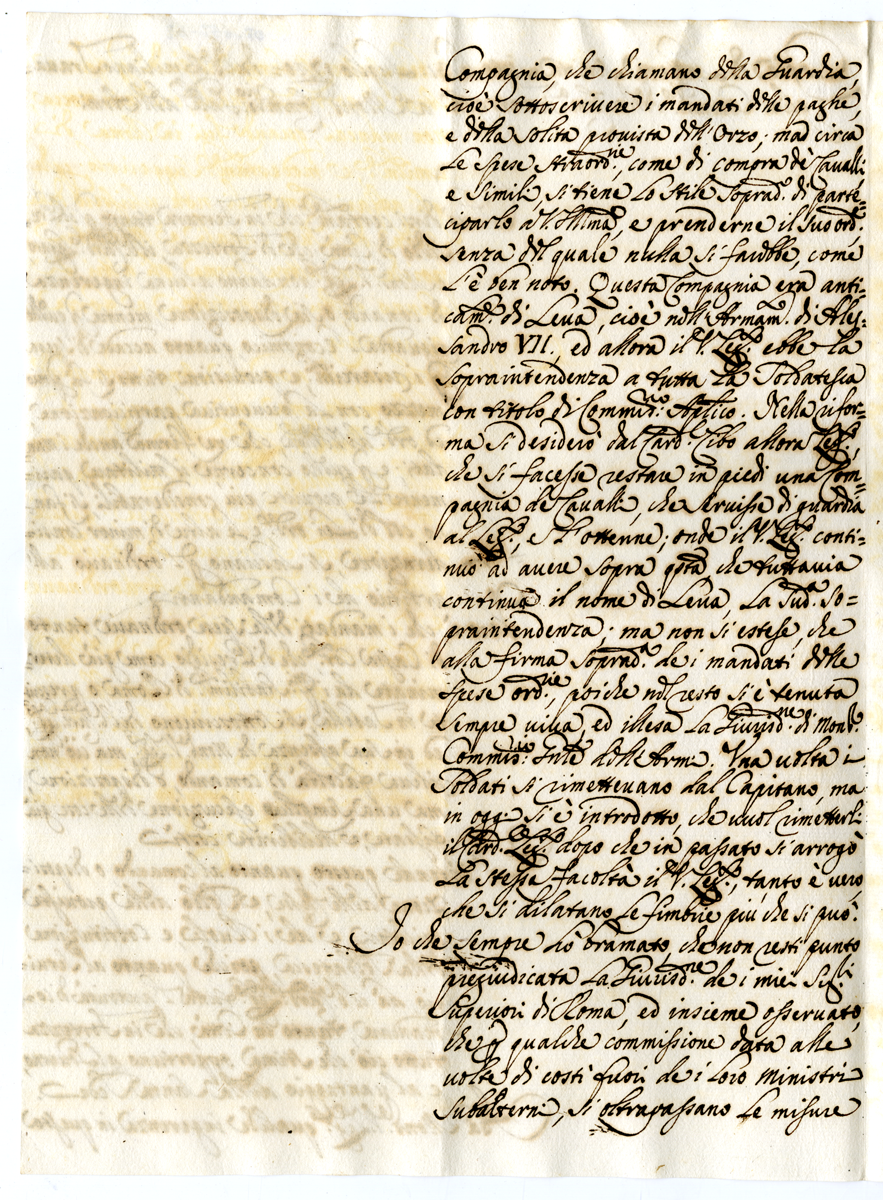 Compagnia, che chiamano della Guardia,
cioè sottoscrivere i mandati delle paghe,
e della solita provista dell'Orzo; mà circa
le spese straord.rie, come di compra de Cavalli
e simili, si tiene lo stile soprad.o di parte-
ciparlo à V. Illma, e prenderne il suo ord.e
senza del quale nulla si farebbe, come
l'è ben noto. Questa Compagnia era anti-
cam.te di Leva, cioè nell'Armam.to di Ales-
sandro VII., ed allora il V. Leg.to ebbe la
sopraintendenza a tutta la Soldatesca
con titolo di Commis.rio Aplico. Nella rifor-
ma si desiderò dal Card. Cibo allora Leg.to,
che si facesse restare in piedi una Com-
pagnia de Cavalli, che servisse di guardia
al Leg.to, e l'ottenne; onde il V. Leg.to conti-
nuò ad avere sopra qsta che tuttavia
continua il nome di Leva, la sud.a so-
praintendenza; ma non si estese, che
alla firma soprad.a de i mandati delle
spese ord.rie, poiche nel resto si è tenuta
sempre viva, ed illesa la Giurisd.ne di Mons.r
Commis.rio Gnle dell'Armi. Una volta i
Soldati si rimettevano dal Capitano, ma
in oggi si è introdotto, che vuol rimetterli
il Card. Leg.to dopo che in passato si arrogò
la stessa facoltà il V. Leg.to, tanto è vero,
che si dilatano le fimbrie più che si può.
Io che sempre hò bramato, che non resti punto
pregiudicata la Giurisd.ne de i miei Sig.ri
Superiori di Roma, ed insieme osservato,
che p qualche commissione data alle
volte di costì fuori de i loro Ministri
subalterni, si oltrapassano le misure